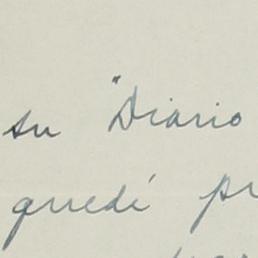 su "Diario
quedé pr